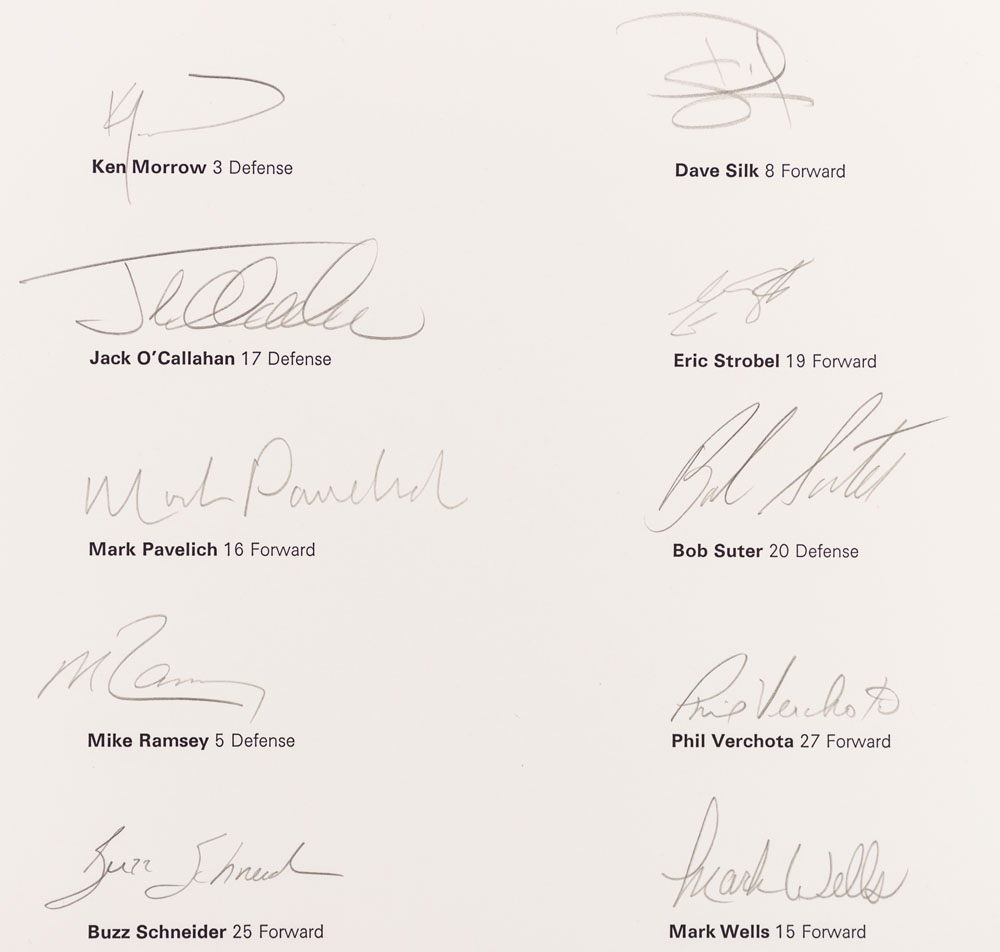 Ken Morrow 3 Defense
Jack O'Callahan 17 Defense
Mark Pavelich
Mark Pavelich 16 Forward
Mike Ramsey 5 Defense
Buzz Schneid
Buzz Schneider 25 Forward
Dave Silk 8 Forward
Eric Strobel 19 Forward
Bob Suter
Bob Suter 20 Defense
Phil Verchota
Phil Verchota 27 Forward
Mark Wells
Mark Wells 15 Forward